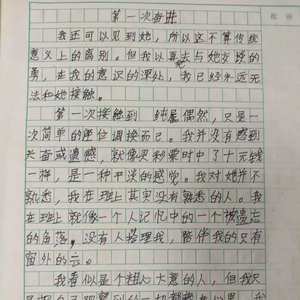 第一次告进
我还可以见到她，所以这不算传统
意义上的离别。但我以再去与她交谈的
勇，在我的意识的深处，我已经永远无
法和她接触。
第一次接触到 纯属偶然，只是一
次简单的座位调换而已。我并没有感到
兴奋或遗感，就像买彩票时中了十元钱
一样，是一种平淡的感觉。我对她并不
熟悉，我在班上其实没有熟悉的人。我
在班上就像一个人记忆中的一个被遗忘
的角落，没有人搭理我，陪伴我的只有
窗外的云。
我看似是个粗心大意的人，但我只